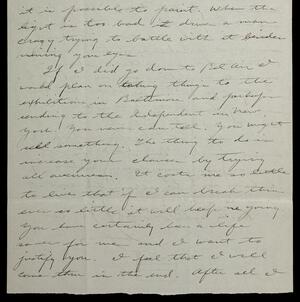 it is possible to paint. When the
light is too bad it drives a man
crazy trying to battle with it besides
ruining your eyes.
If I did go down to Bel Air I
would plan on taking things to the
exhibitions in Baltimore and perhaps
sending to the Independent in New
York. You never can tell. You might
sell something. The thing to do is
increase your chances by trying
all avenues. It costs me so little
to live that if I can break thin
ever so little it will keep me going
You have certainly been a life
saver for me and I want to
justify you. I feel that I will
come thru in the end. After all I